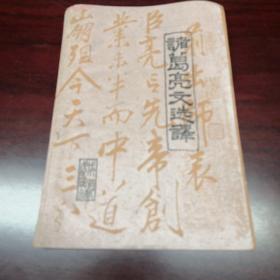 諸葛亮文选譯
前出師表
臣亮言先帝創
業未半而中道
崩殂今天下三